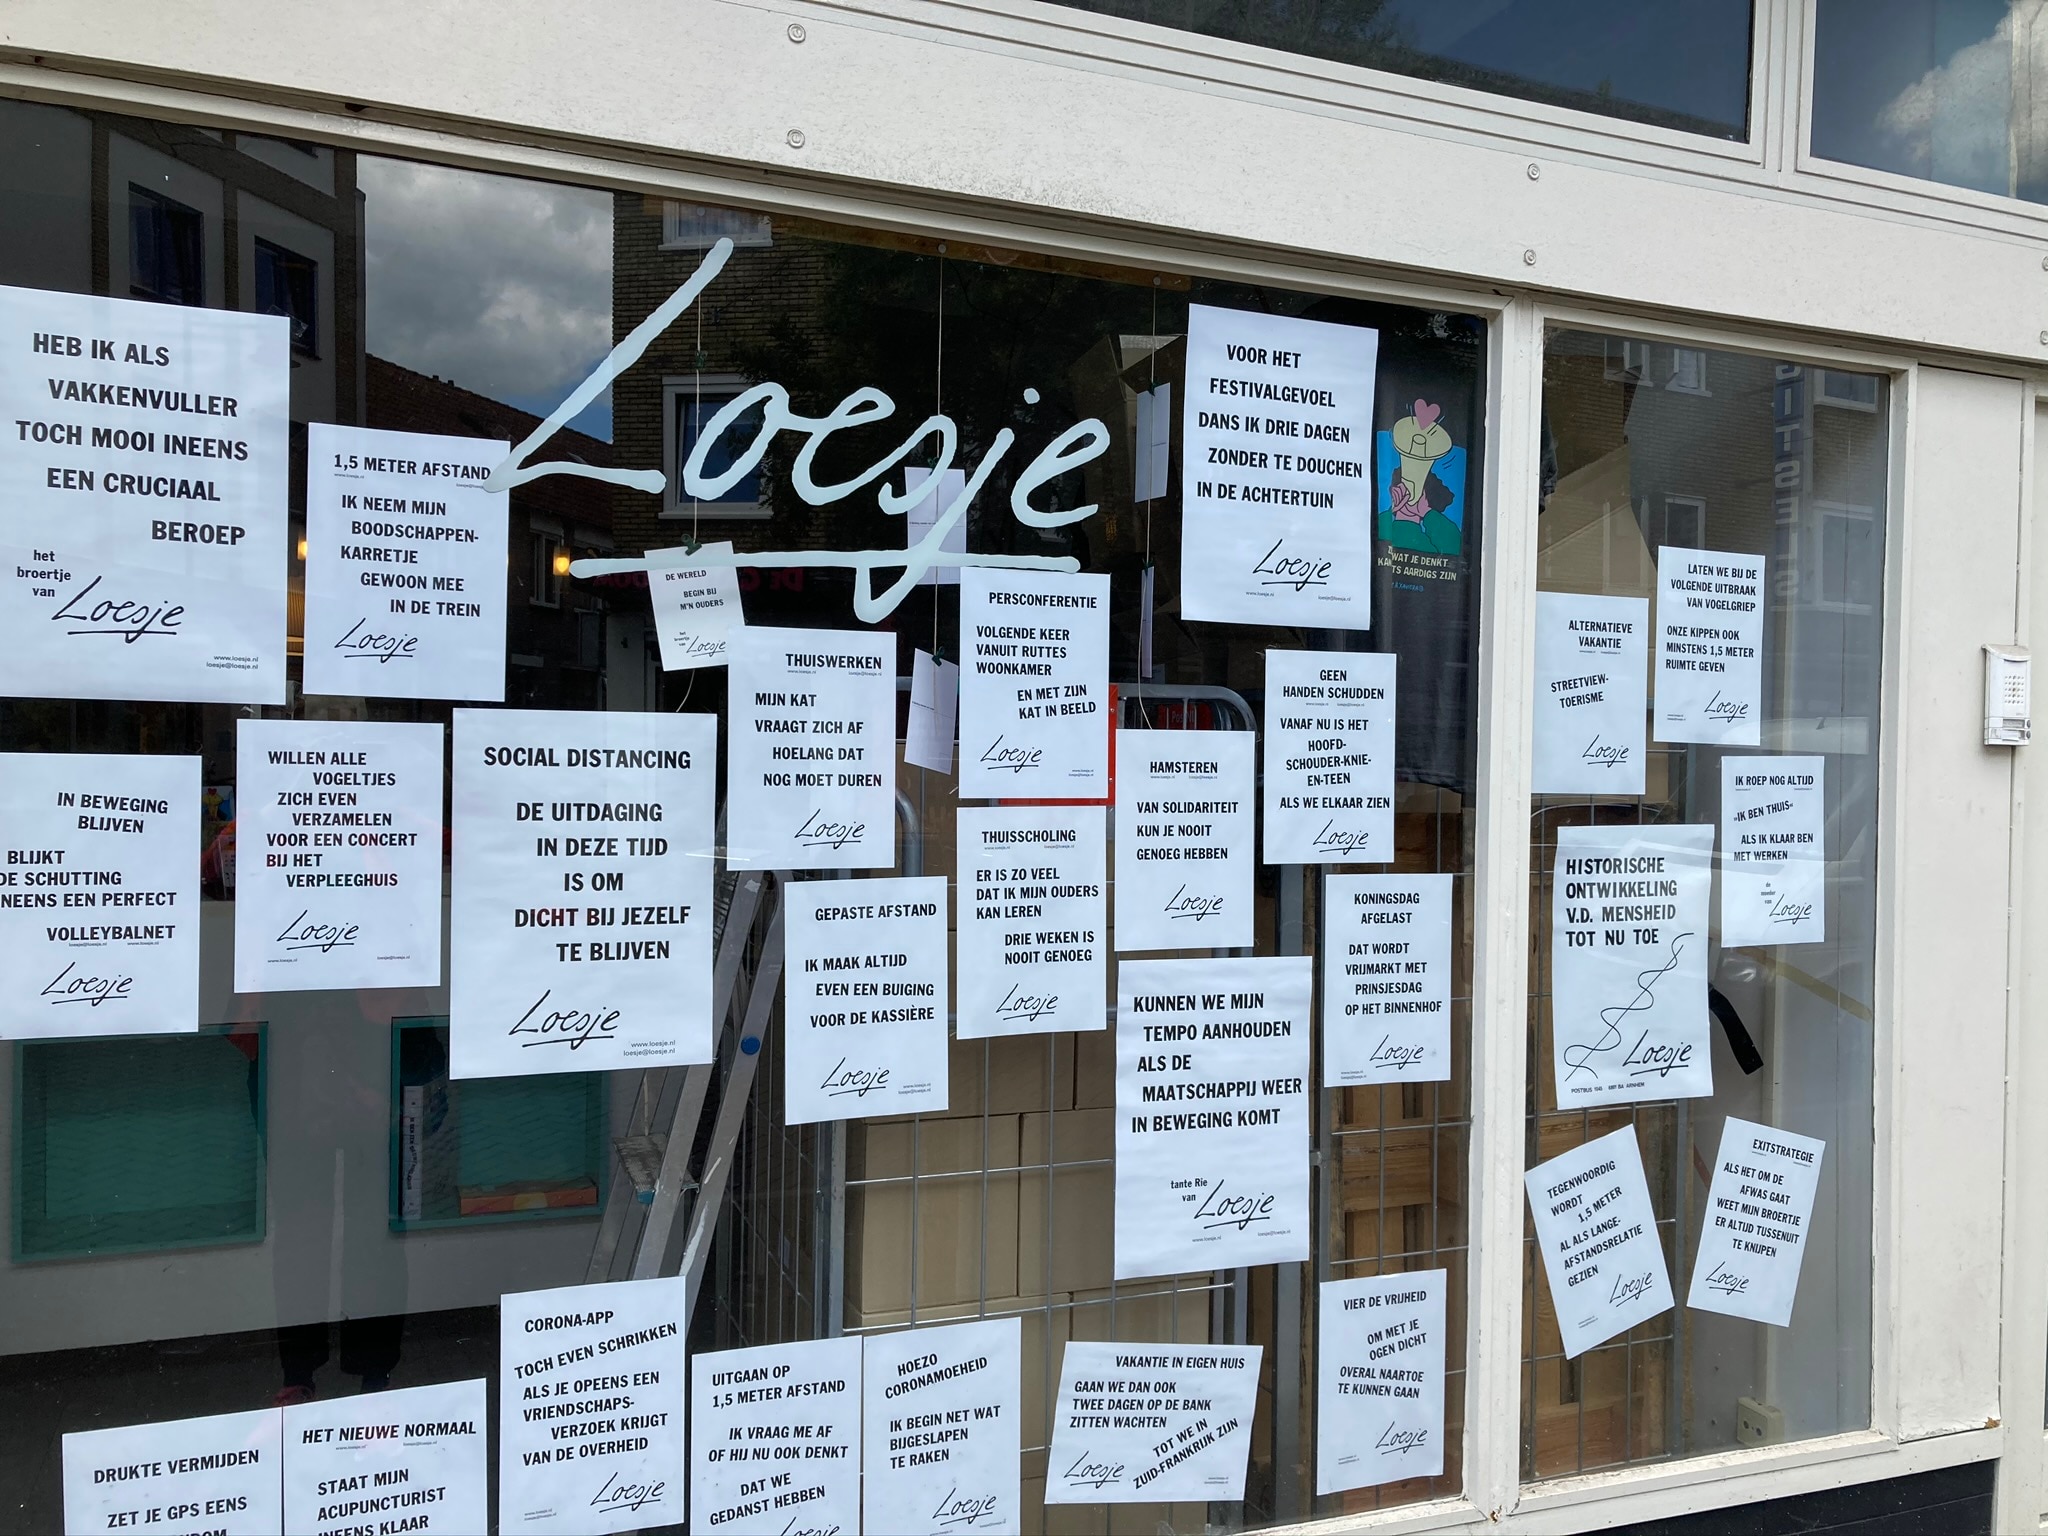 Loesje
HEB IK ALS
VAKKENVULLER
TOCH MOOI INEENS
EEN CRUCIAAL
BEROEP
het
broertje
van
Loesje
www.loesje.nl
loesje@loesje.nl
1,5 METER AFSTAND
IK NEEM MIJN
BOODSCHAPPEN-
KARRETJE
GEWOON MEE
IN DE TREIN
Loesje
DE WERELD
BEGIN BIJ
M'N OUDERS
het
broertje
van
Loesje
THUISWERKEN
MIJN KAT
VRAAGT ZICH AF
HOELANG DAT
NOG MOET DUREN
Loesje
PERSCONFERENTIE
VOLGENDE KEER
VANUIT RUTTES
WOONKAMER
EN MET ZIJN
KAT IN BEELD
Loesje
VOOR HET
FESTIVALGEVOEL
DANS IK DRIE DAGEN
ZONDER TE DOUCHEN
IN DE ACHTERTUIN
Loesje
www.loesje.nl
loesje@loesje.nl
WAT JE DENKT
TS AARDIGS ZIJN
GEEN
HANDEN SCHUDDEN
VANAF NU IS HET
HOOFD-
SCHOUDER-KNIE-
EN-TEEN
ALS WE ELKAAR ZIEN
Loesje
ALTERNATIEVE
VAKANTIE
STREETVIEW-
TOERISME
Loesje
LATEN WE BIJ DE
VOLGENDE UITBRAAK
VAN VOGELGRIEP
ONZE KIPPEN OOK
MINSTENS 1,5 METER
RUIMTE GEVEN
Loesje
IN BEWEGING
BLIJVEN
BLIJKT
DE SCHUTTING
NEENS EEN PERFECT
VOLLEYBALNET
loesje@loesje.nl
www.loesje.nl
Loesje
WILLEN ALLE
VOGELTJES
ZICH EVEN
VERZAMELEN
VOOR EEN CONCERT
BIJ HET
VERPLEEGHUIS
Loesje
www.loesje.nl
loesje@loesje.nl
SOCIAL DISTANCING
DE UITDAGING
IN DEZE TIJD
IS OM
DICHT BIJ JEZELF
TE BLIJVEN
Loesje
www.loesje.nl
loesje@loesje.nl
GEPASTE AFSTAND
IK MAAK ALTIJD
EVEN EEN BUIGING
VOOR DE KASSIÈRE
Loesje
www.loesje.nl
loesje@loesje.nl
THUISSCHOLING
ER IS ZO VEEL
DAT IK MIJN OUDERS
KAN LEREN
DRIE WEKEN IS
NOOIT GENOEG
Loesje
HAMSTEREN
VAN SOLIDARITEIT
KUN JE NOOIT
GENOEG HEBBEN
Loesje
KUNNEN WE MIJN
TEMPO AANHOUDEN
ALS DE
MAATSCHAPPIJ WEER
IN BEWEGING KOMT
tante Rie
van
Loesje
www.loesje.nl
loesje@loesje.nl
KONINGSDAG
AFGELAST
DAT WORDT
VRIJMARKT MET
PRINSJESDAG
OP HET BINNENHOF
Loesje
HISTORISCHE
ONTWIKKELING
V.D. MENSHEID
TOT NU TOE
Loesje
POSTBUS 1045 6801 BA ARNHEM
IK ROEP NOG ALTIJD
„IK BEN THUIS"
ALS IK KLAAR BEN
MET WERKEN
de
moeder
van
Loesje
TEGENWOORDIG
WORDT
1,5 METER
AL ALS LANGE-
AFSTANDSRELATIE
GEZIEN
Loesje
EXITSTRATEGIE
ALS HET OM DE
AFWAS GAAT
WEET MIJN BROERTJE
ER ALTIJD TUSSENUIT
TE KNIJPEN
Loesje
DRUKTE VERMIJDEN
ZET JE GPS EENS
HET NIEUWE NORMAAL
STAAT MIJN
ACUPUNCTURIST
INEENS KLAAR
CORONA-APP
TOCH EVEN SCHRIKKEN
ALS JE OPEENS EEN
VRIENDSCHAPS-
VERZOEK KRIJGT
VAN DE OVERHEID
Loesje
UITGAAN OP
1,5 METER AFSTAND
IK VRAAG ME AF
OF HIJ NU OOK DENKT
DAT WE
GEDANST HEBBEN
Loesje
HOEZO
CORONAMOEHEID
IK BEGIN NET WAT
BIJGESLAPEN
TE RAKEN
Loesje
VAKANTIE IN EIGEN HUIS
GAAN WE DAN OOK
TWEE DAGEN OP DE BANK
ZITTEN WACHTEN
TOT WE IN
ZUID-FRANKRIJK ZIJN
Loesje
VIER DE VRIJHEID
OM MET JE
OGEN DICHT
OVERAL NAARTOE
TE KUNNEN GAAN
Loesje